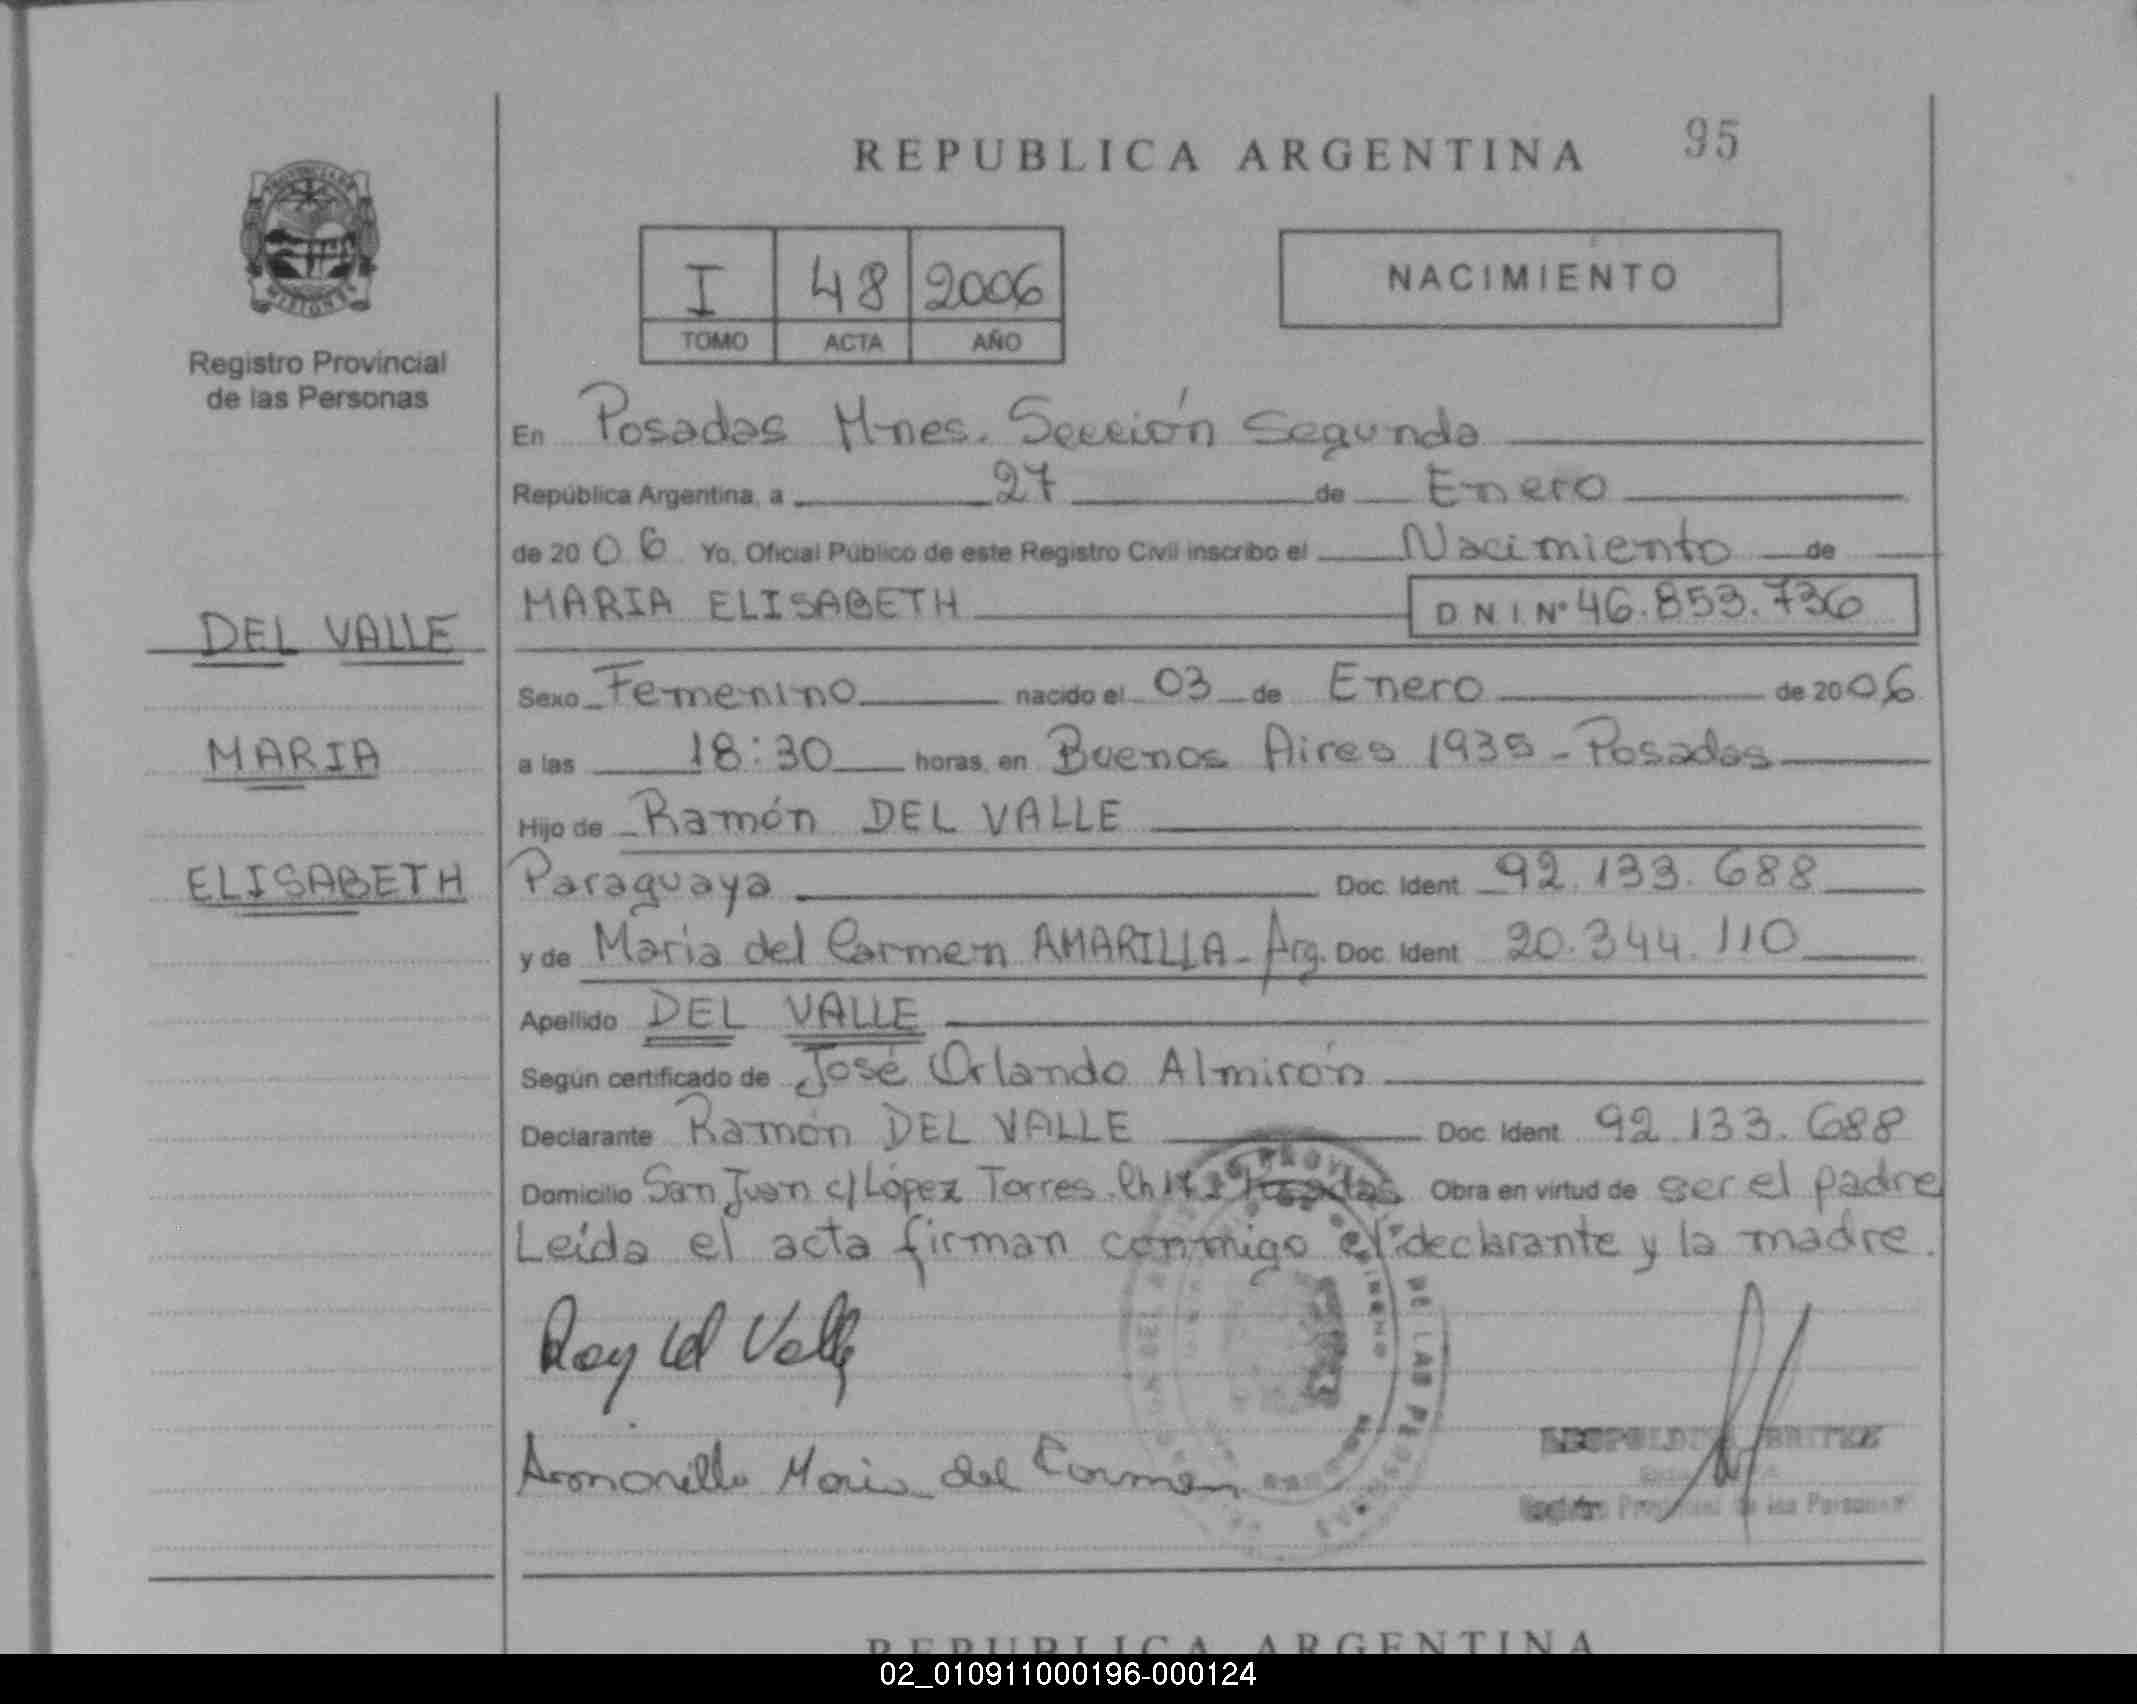 REPUBLICA ARGENTINA 95
MISIONES
Registro Provincial
de las Personas
I 48 2006
TOMO ACTA AÑO
NACIMIENTO
En Posadas Mnes. Sección Segunda
República Argentina, a 27 de Enero
de 2006 Yo, Oficial Público de este Registro Civil inscribo el Nacimiento de
MARIA ELISABETH D N I. Nº 46.853.736
DEL VALLE
MARIA
ELISABETH
Sexo Femenino nacido el 03 de Enero de 2006
a las 18:30 horas, en Buenos Aires 1935 - Posadas
Hijo de Ramón DEL VALLE
Paraguaya Doc. Ident 92.133.688
y de Maria del Carmen AMARILLA - Arg. Doc. Ident 20.344.110
Apellido DEL VALLE
Según certificado de José Orlando Almirón
Declarante Ramón DEL VALLE Doc. Ident. 92.133.688
Domicilio San Juan c/ López Torres. Posadas Obra en virtud de ser el padre
Leída el acta firman conmigo el declarante y la madre.
del Valle
Amarilla Maria del Carmen
DE LAS PERSONAS
Registro Provincial de las Personas
REPUBLICA ARGENTINA
02_010911000196-000124